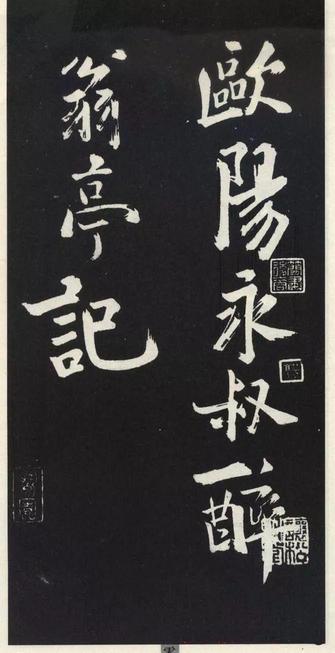 歐陽永叔醉
翁亭記